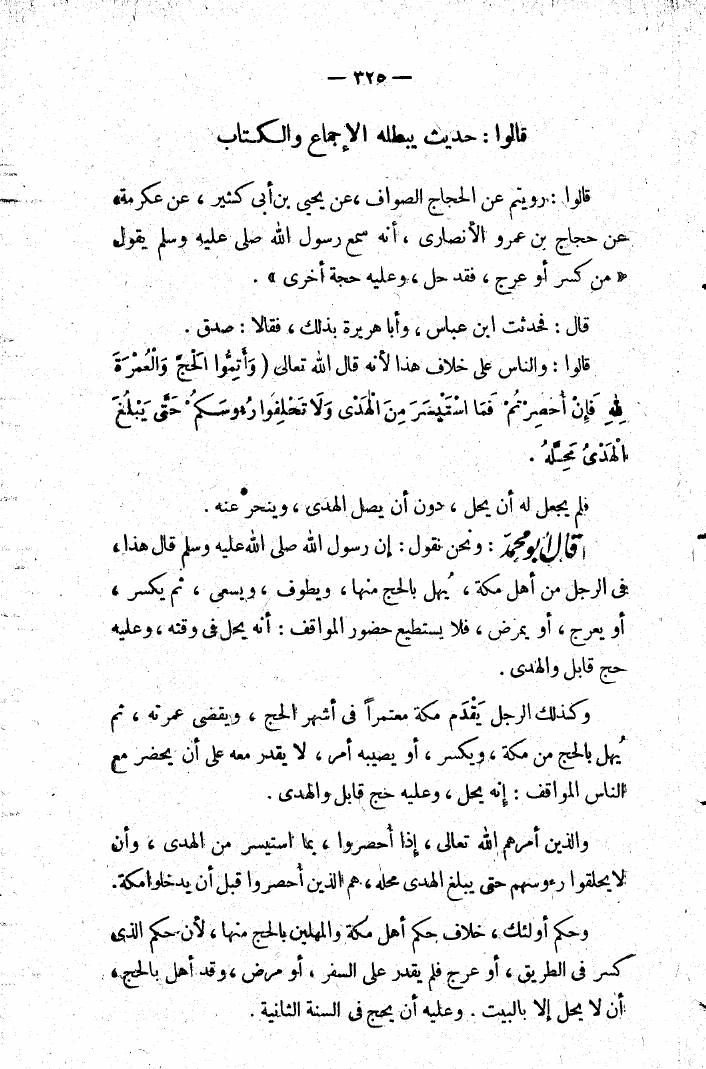 — ٣٢٥ —
قالوا : حديث يبطله الإجماع والكتاب
قالوا : رويتم عن الحجاج الصواف ، عن يحيى بن أبى كثير ، عن عكرمة ،
عن حجاج بن عمرو الأنصارى ، أنه سمع رسول الله صلى عليه وسلم يقول
« من كسر أو عرج ، فقد حل ، وعليه حجة أخرى » .
قال : فحدثت ابن عباس ، وأبا هريرة بذلك ، فقالا : صدق .
قالوا : والناس على خلاف هذا لأنه قال الله تعالى ( وَأَتِمُّوا الْحَجَّ وَالْعُمْرَةَ
لِلَّهِ فَإِنْ أُحْصِرْتُمْ فَمَا اسْتَيْسَرَ مِنَ الْهَدْىِ وَلَا تَحْلِقُوا رُءوسَكُمْ حَتَّى يَبْلُغَ
الْهَدْىُ مَحِلَّهُ .
فلم يجعل له أن يحل ، دون أن يصل الهدى ، وينحر عنه .
قال أبو محمد : ونحن نقول : إن رسول الله صلى الله عليه وسلم قال هذا ،
فى الرجل من أهل مكة ، يُهل بالحج منها ، ويطوف ، ويسعى ، ثم يكسر ،
أو يعرج ، أو يمرض ، فلا يستطيع حضور المواقف : أنه يحل فى وقته ، وعليه
حج قابل والهدى .
وكذلك الرجل يَقْدَم مكة معتمراً فى أشهر الحج ، ويقضى عمرته ، ثم
يُهل بالحج من مكة ، ويكسر ، أو يصيبه أمر ، لا يقدر معه على أن يحضر مع
الناس المواقف : إنه يحل ، وعليه حج قابل والهدى .
والذين أمرهم الله تعالى ، إذا أُحصروا ، بما استيسر من الهدى ، وأن
لا يحلقوا رءوسهم حتى يبلغ الهدى محله ، هم الذين أُحصروا قبل أن يدخلوا مكة .
وحكم أولئك ، خلاف حكم أهل مكة والمهلين بالحج منها ، لأن حكم الذى
كسر فى الطريق ، أو عرج فلم يقدر على السفر ، أو مرض ، وقد أهل بالحج ،
أن لا يحل إلا بالبيت . وعليه أن يحج فى السنة الثانية .